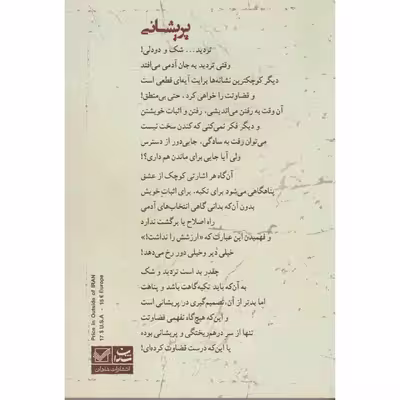 پریشانی
تردید... شک و دودلی!
وقتی تردید به جان آدمی می‌افتد
دیگر کوچکترین نشانه‌ها برایت آیه‌ای قطعی است
و قضاوتت را خواهی کرد، حتی بی‌منطق!
آن وقت به رفتن می‌اندیشی، رفتن و اثبات خویشتن
و دیگر فکر نمی‌کنی که کندن سخت نیست
می‌توان رفت به سادگی، جایی‌دور از دسترس
ولی آیا جایی برای ماندن هم داری؟!
آن‌گاه هر اشارتی کوچک از عشق
پناهگاهی می‌شود برای تکیه، برای اثبات خویش
بدون آن‌که بدانی گاهی انتخاب‌های آدمی
راه اصلاح یا برگشت ندارد
و فهمیدن این عبارات که «ارزشش را نداشت!»
خیلی دیر وخیلی دور رخ می‌دهد!
چقدر بد است تردید و شک
به آن‌که باید تکیه‌گاهت باشد و پناهت
اما بدتر از آن، تصمیم‌گیری در پریشانی است
و این‌که هیچ‌گاه نفهمی قضاوتت
تنها از سر درهم‌ریختگی و پریشانی بوده
یا این‌که درست قضاوت کرده‌ای!
Price in Outside of IRAN
17 $ U.S.A - 15 € Europe
انتشارات شادان